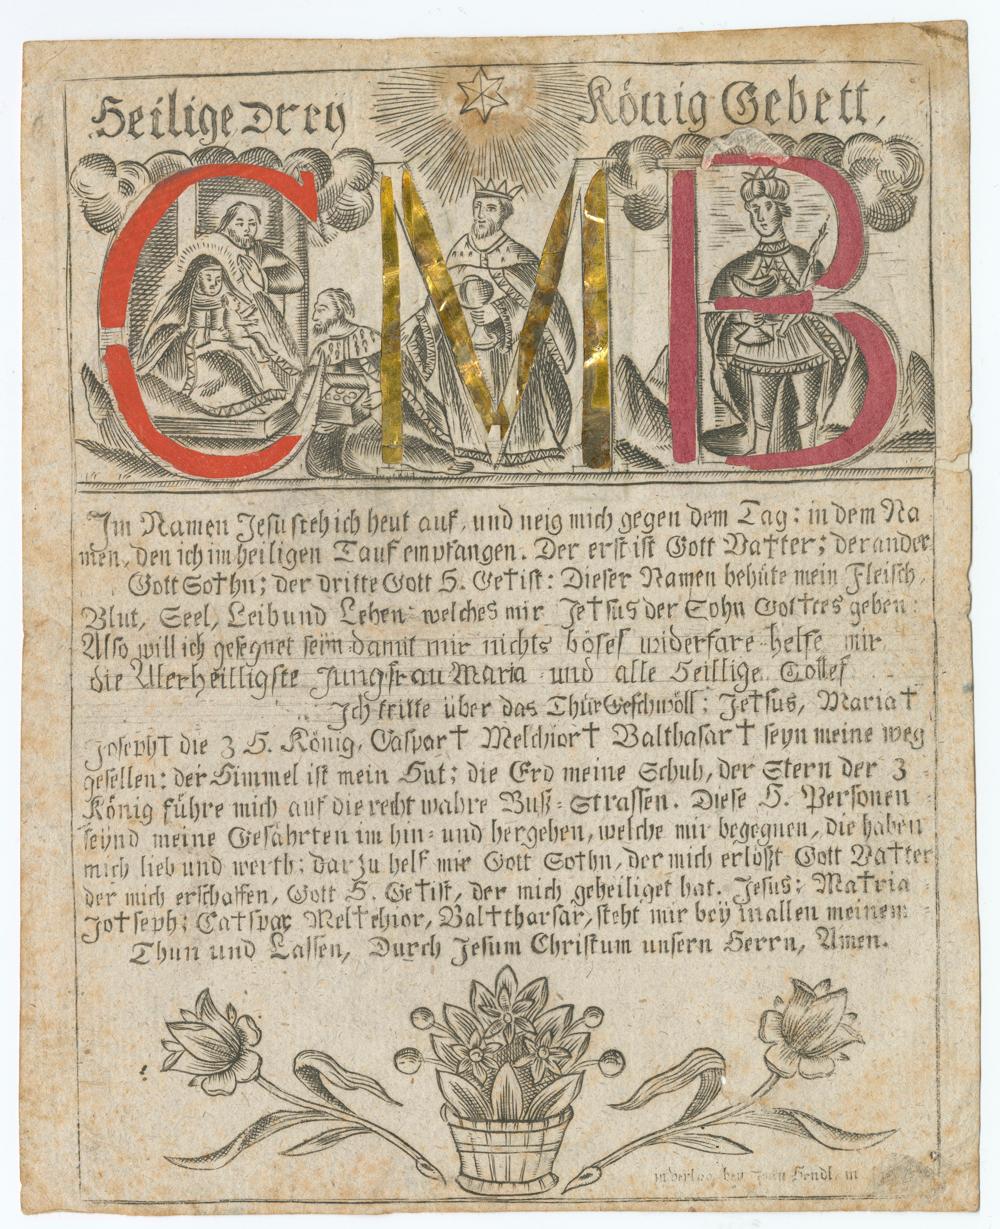 Heilige Dreÿ König Gebett,
C M B
Im Namen Jesu steh ich heut auf, und neig mich gegen dem Tag: in dem Na
men, den ich im heiligen Tauf empfangen. Der erst ist Gott Va†ter; der ander
Gott So†hn; der dritte Gott H. Ge†ist: Dieser Namen behüte mein Fleisch,
Blut, Seel, Leib und Leben welches mir Je†sus der Sohn Gottes geben:
Also will ich gesegnet seÿn damit mir nichts böses widerfare helfe mir
die Allerheilligste Jungfrau Maria und alle Heillige Gottes
Ich tritte über das Thür Geschwöll; Je†sus, Maria†
Joseph† die 3 H. König, Caspar† Melchior† Balthasar† seyn meine weg
gesellen: der Himmel ist mein Hut; die Erd meine Schuh, der Stern der 3
König führe mich auf die recht wahre Buß=Strassen. Diese H. Personen
seÿnd meine Gefährten im hin= und hergehen, welche mir begegnen, die haben
mich lieb und werth: darzu helf mir Gott So†hn, der mich erlößt Gott Va†ter
der mich erschaffen, Gott H. Ge†ist, der mich geheiliget hat. Jesus: Ma†ria
Jo†seph; Ca†spar Mel†chior, Bal†tharsar, steht mir beÿ in allen meinem
Thun und Lassen, Durch Jesum Christum unsern Herrn, Amen.
in verlag bey Hendl, in